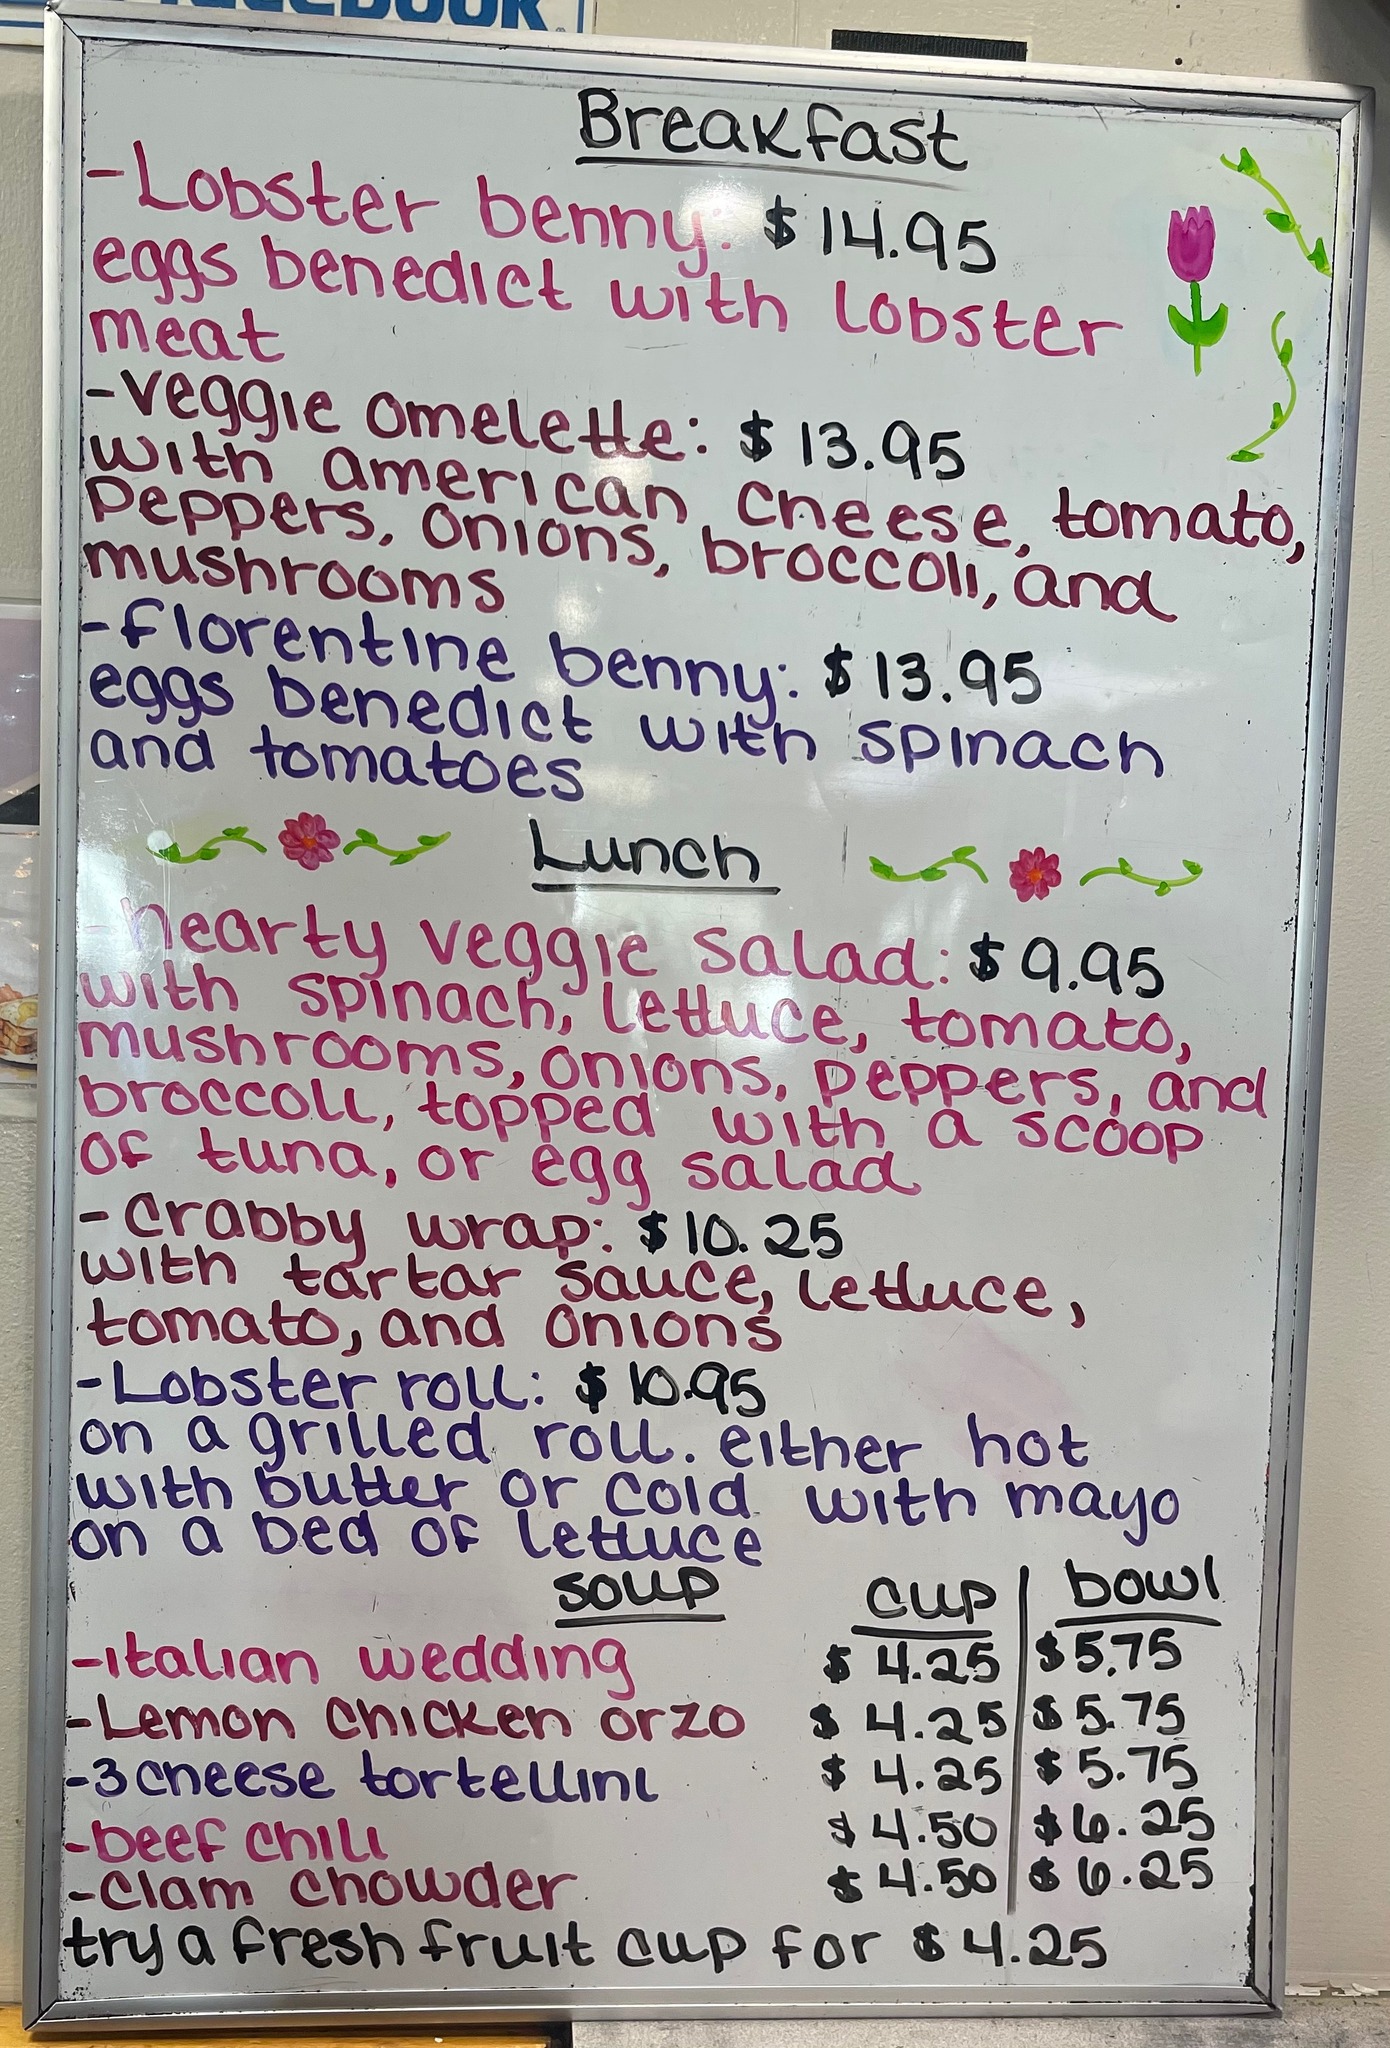 FACEBOOK
Breakfast
-Lobster benny: $14.95
eggs benedict with lobster
meat
-veggie omelette: $13.95
with american cheese, tomato,
peppers, onions, broccoli, and
mushrooms
-florentine benny: $13.95
eggs benedict with spinach
and tomatoes
Lunch
-hearty veggie salad: $9.95
with spinach, lettuce, tomato,
mushrooms, onions, peppers, and
broccoli, topped with a scoop
of tuna, or egg salad
-crabby wrap: $10.25
with tartar sauce, lettuce,
tomato, and onions
-Lobster roll: $10.95
on a grilled roll. either hot
with butter or cold with mayo
on a bed of lettuce
soup cup bowl
-italian wedding $4.25 $5.75
-Lemon chicken orzo $4.25 $5.75
-3 cheese tortellini $4.25 $5.75
-beef chili $4.50 $6.25
-clam chowder $4.50 $6.25
try a fresh fruit cup for $4.25